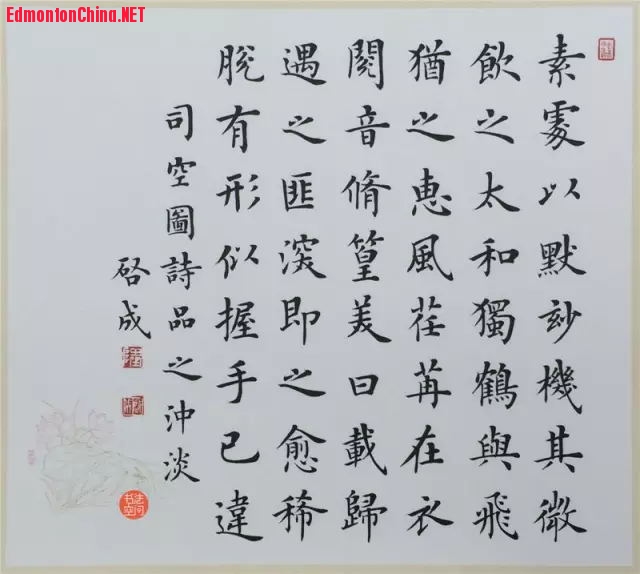 EdmontonChina.NET
素處以默玅機其微
飲之太和獨鶴與飛
猶之惠風荏苒在衣
閱音脩篁美曰載歸
遇之匪深即之愈稀
脫有形似握手已違
司空圖詩品之沖淡
启成